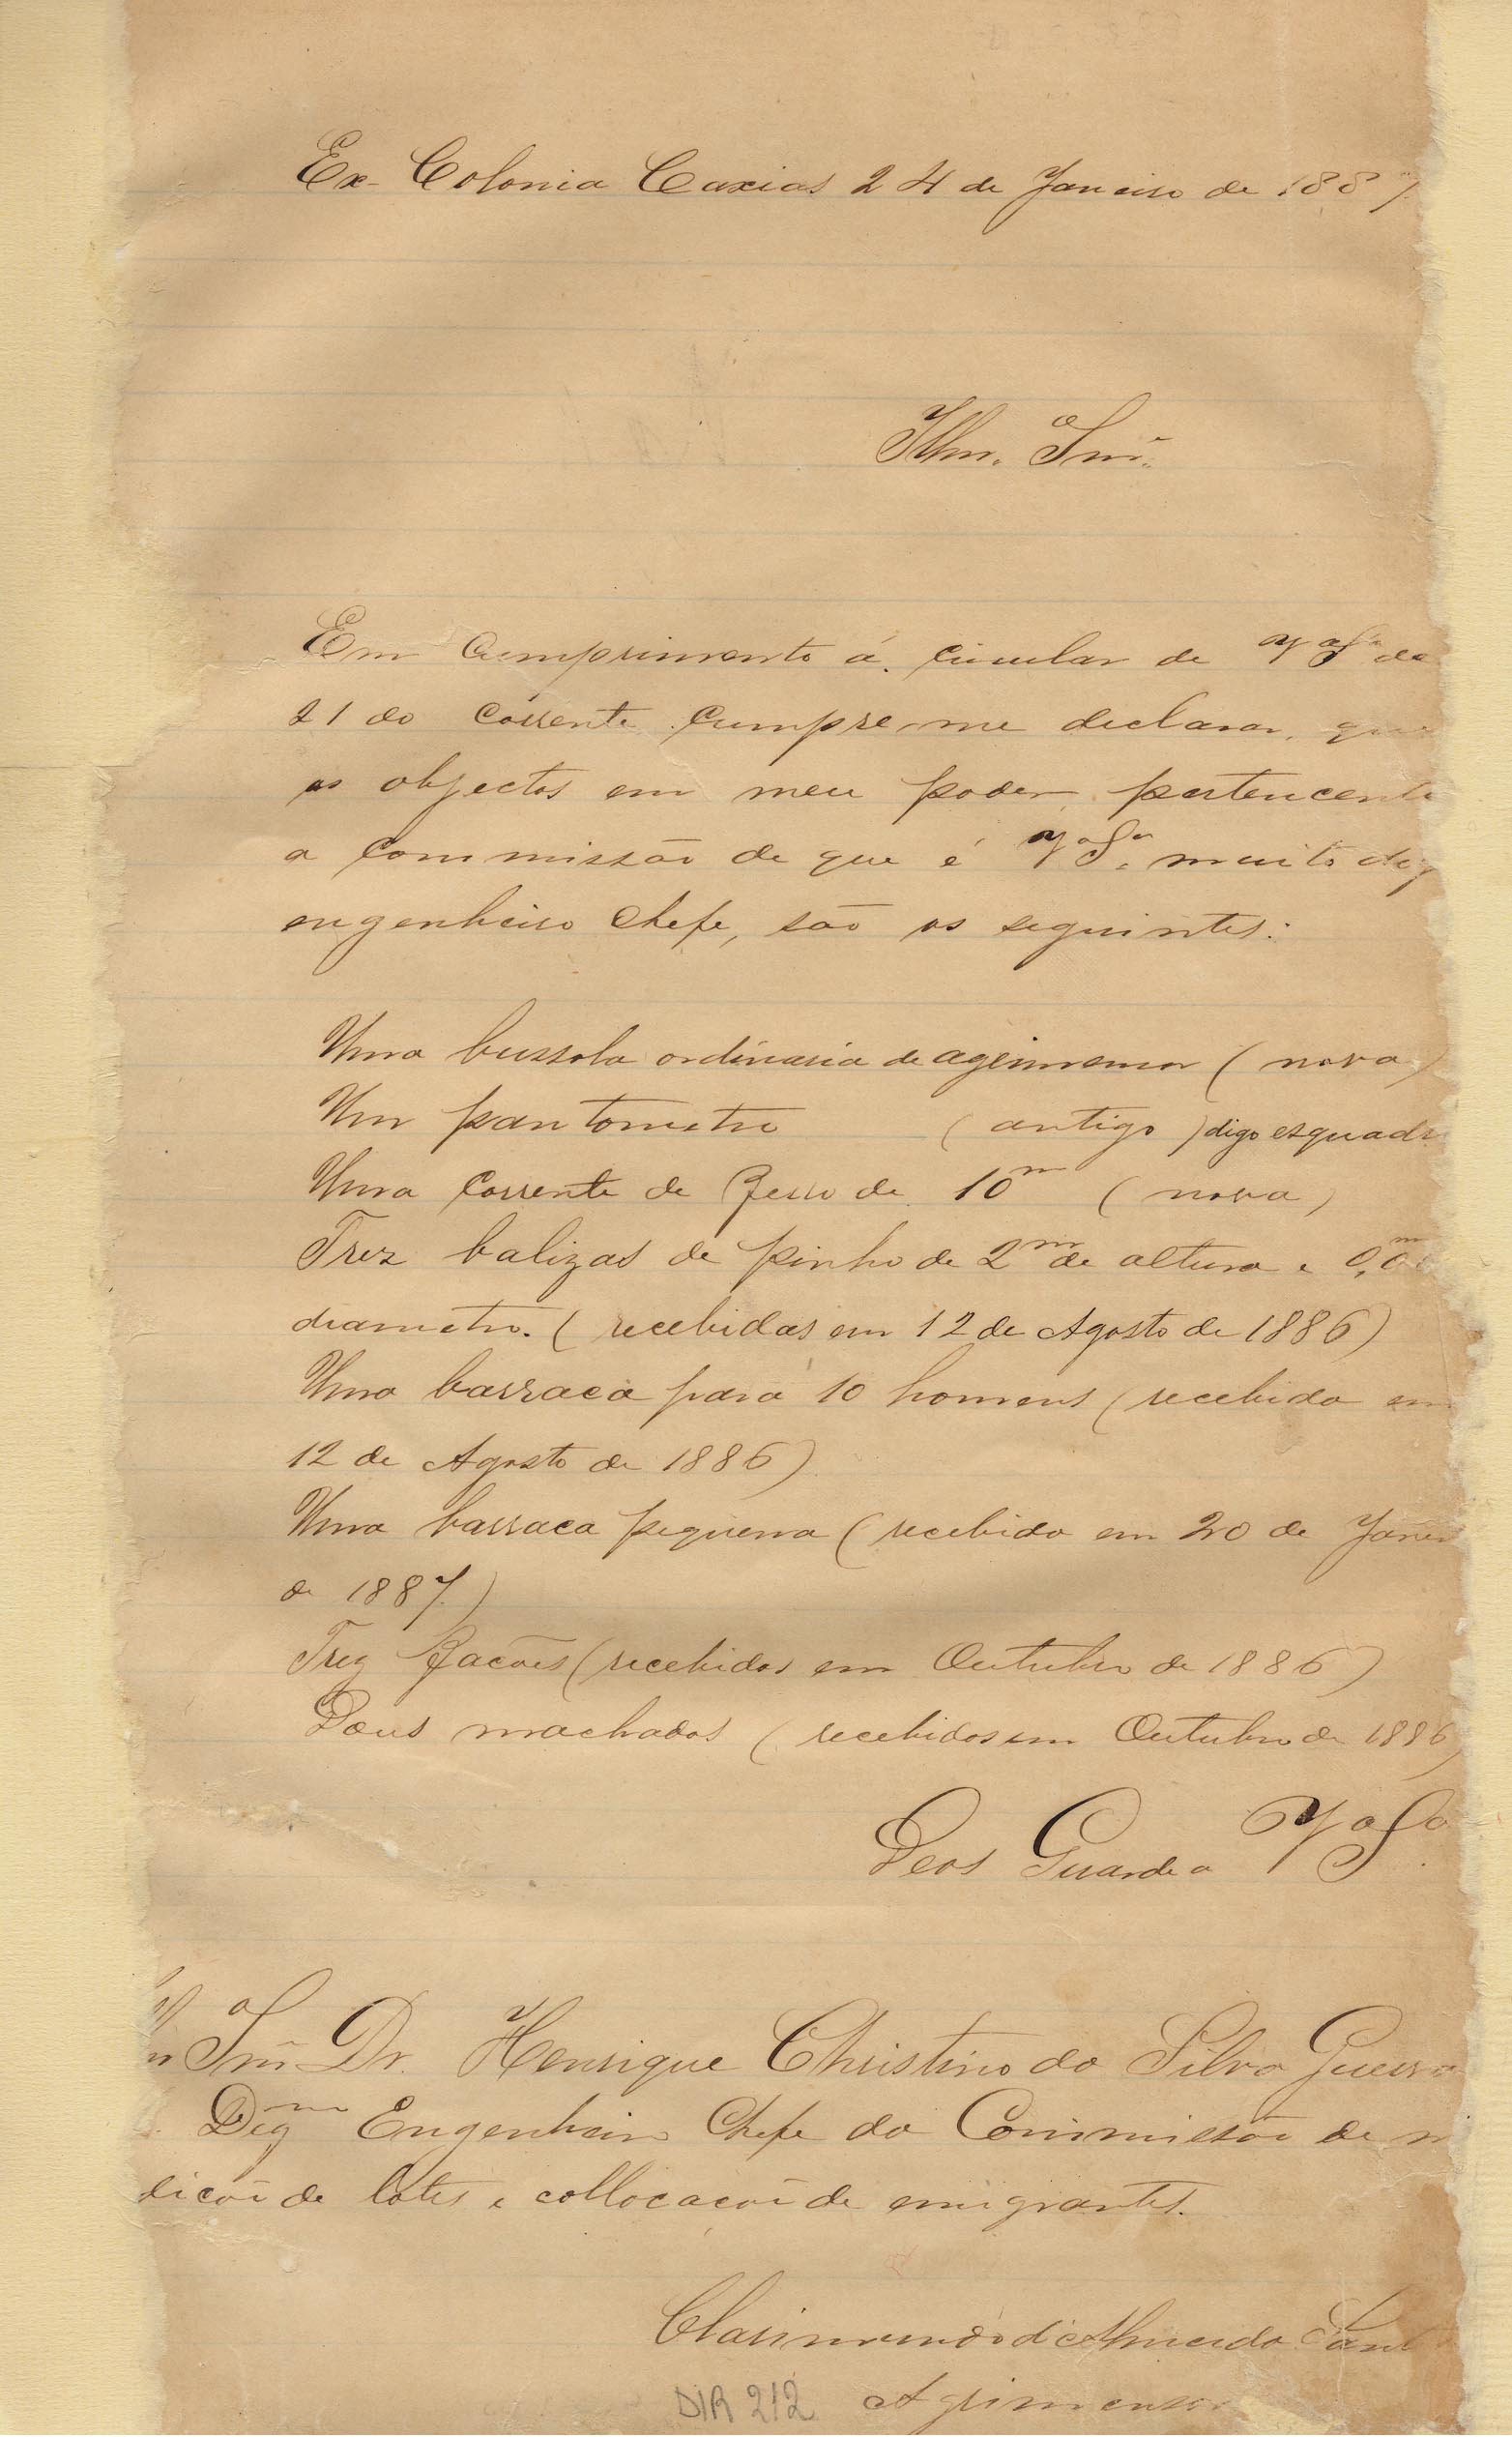 Ex-Colonia Caxias 24 de Janeiro de 1887.
Illm. Snr.
Em cumprimento á circular de V. Sª de
21 do corrente cumpre-me declarar, que
os objectos em meu poder pertencente
a Commissão de que é V. Sª. muito dig
engenheiro chefe, são os seguintes:
Uma bussola ordinaria de agrimensor (nova)
Um pantometro (antigo) digo esquadr
Uma corrente de ferro de 10m (nova)
Trez balizas de pinho de 2m de altura e 0,m0
diametro. (recebidas em 12 de Agosto de 1886)
Uma barraca para 10 homens (recebida em
12 de Agosto de 1886)
Uma barraca pequena (recebida em 20 de Janei
de 1887.)
Trez facões (recebidos em Outubro de 1886)
Dous machados (recebidos em Outubro de 1886)
Deos Guarde a V. Sª
Snr. Dr. Henrique Christino da Silva Guerra
Digmo Engenheiro Chefe da Commissão de m
dicão de lotes e collocacão de emigrantes.
Clarimundo d'Almeida Sant
DIR 212 Agrimensor